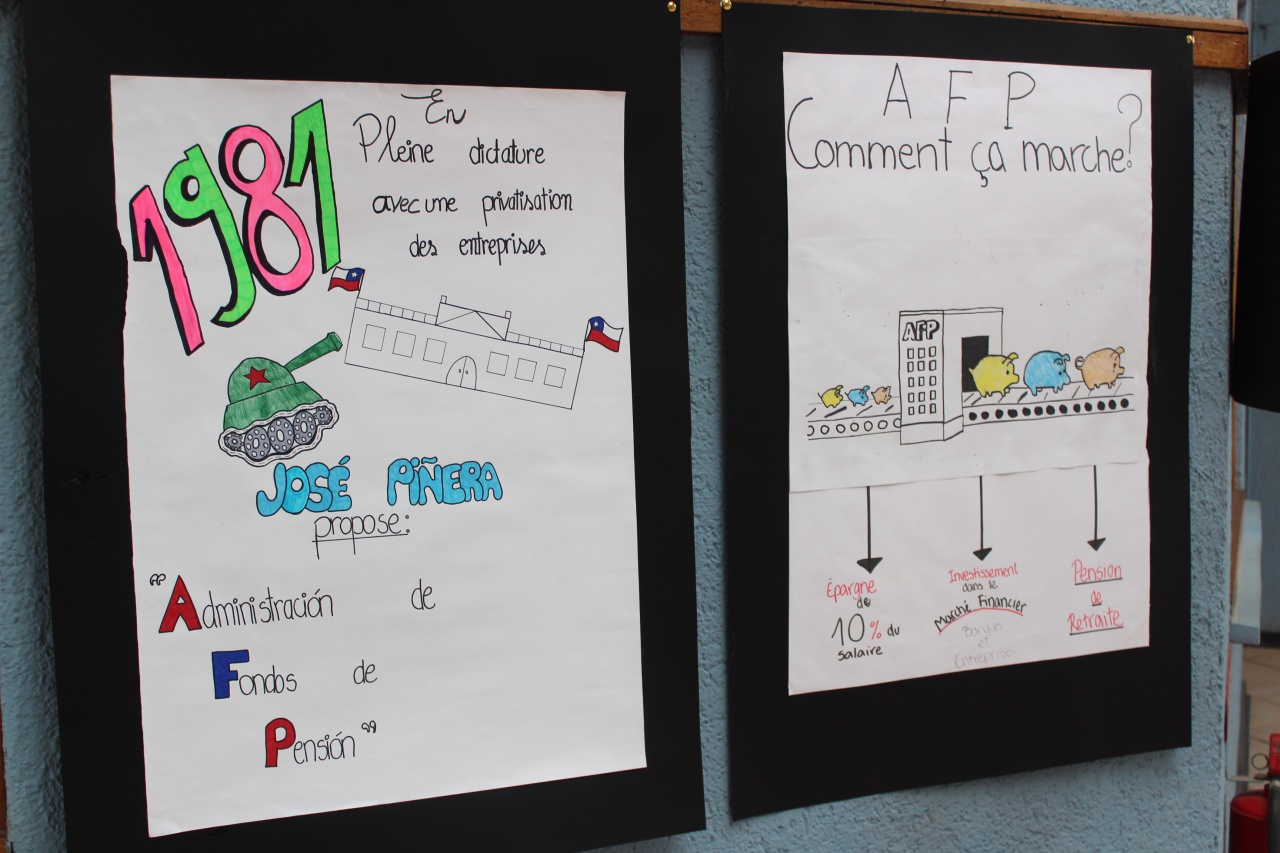 1981
En
Pleine dictature
avec une privatisation
des entreprises
JOSÉ PIÑERA
propose:
"Administración de
Fondos de
Pensión"
AFP
Comment ça marche?
AFP
Épargne
de
10% du
salaire
Investissement
dans le
Marché Financier
Banque
et
Entreprises
Pension
de
Retraite